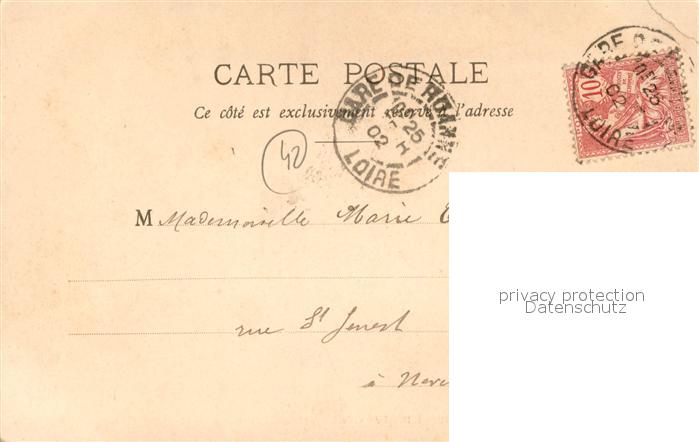 CARTE POSTALE
Ce côté est exclusivement réservé à l'adresse
GARE DE ROANNE
25
02
LOIRE
GARE DE
25
02
LOIRE
10
42
M Mademoiselle Marie
rue St Genest
à
privacy protection
Datenschutz